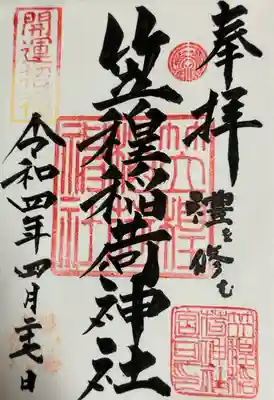 奉拝
禮を修む
笠䅣稲荷神社
開運招福
令和四年四月二十七日